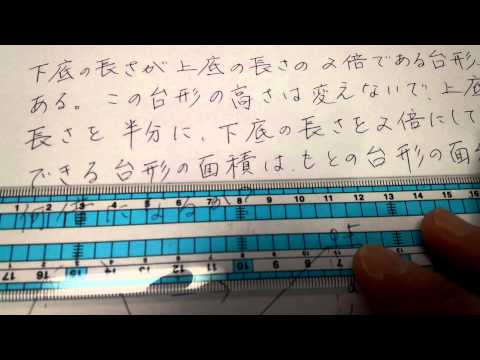 下底の長さが上底の長さの2倍である台形
ある。この台形の高さは変えないで、上底
長さを半分に、下底の長さを2倍にして
できる台形の面積は、もとの台形の面
1 2 3 4 5 6 7 8 9 10 11 12 13 14 15 16
何倍になるか
0.5
17 16 15 12 11 10 8 7